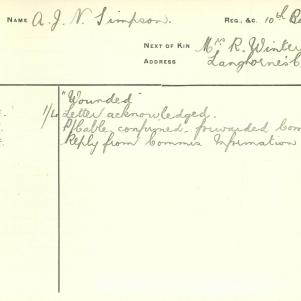 NAME A. J. N. Simpson. REG., &C. 10th
NEXT OF KIN Mrs R. Winter
ADDRESS Langhorne's C
"Wounded"
1/4 Letter acknowledged.
P/Cable confirmed - forwarded Com
Reply from Commis Information